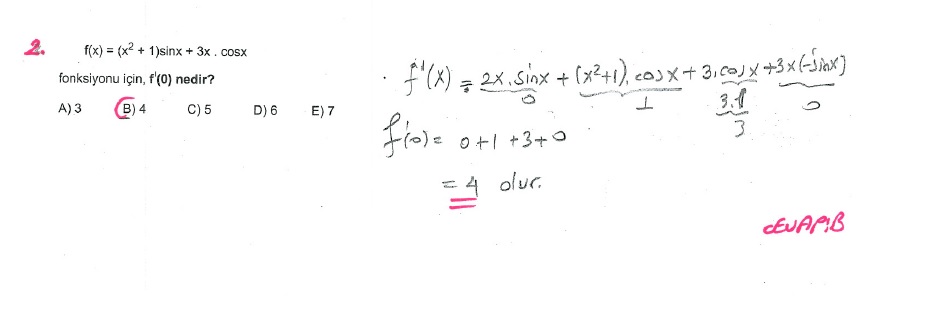 2. f(x) = (x² + 1)sinx + 3x . cosx
fonksiyonu için, f'(0) nedir?
A) 3 B) 4 C) 5 D) 6 E) 7
. f'(x) = 2x.sinx + (x²+1).cosx + 3.cosx + 3x(-sinx)
0 1 3.1 0
3
f'(0) = 0+1+3+0
= 4 olur.
CEVAP:B